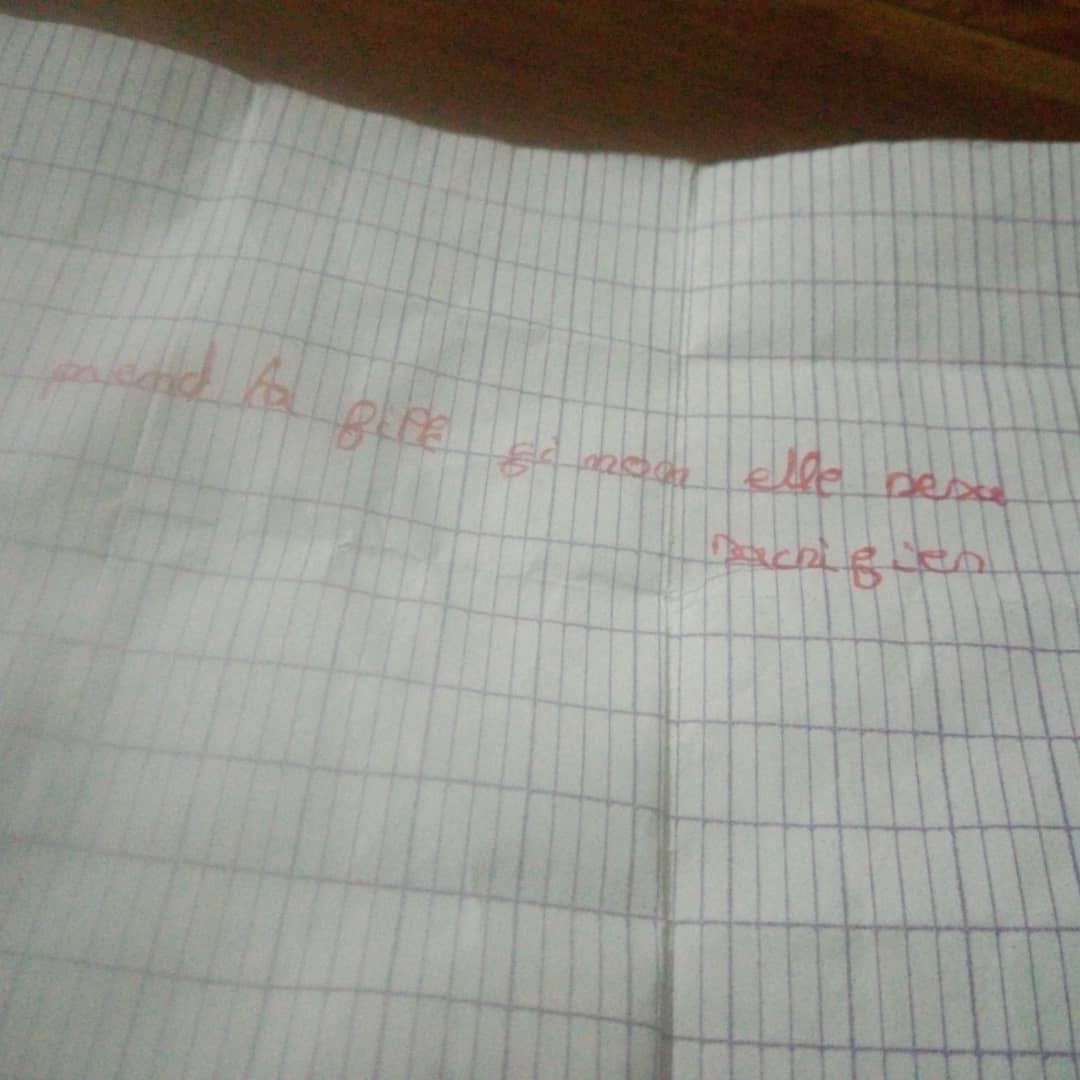 prend ta fille si non elle sera
sacrifien